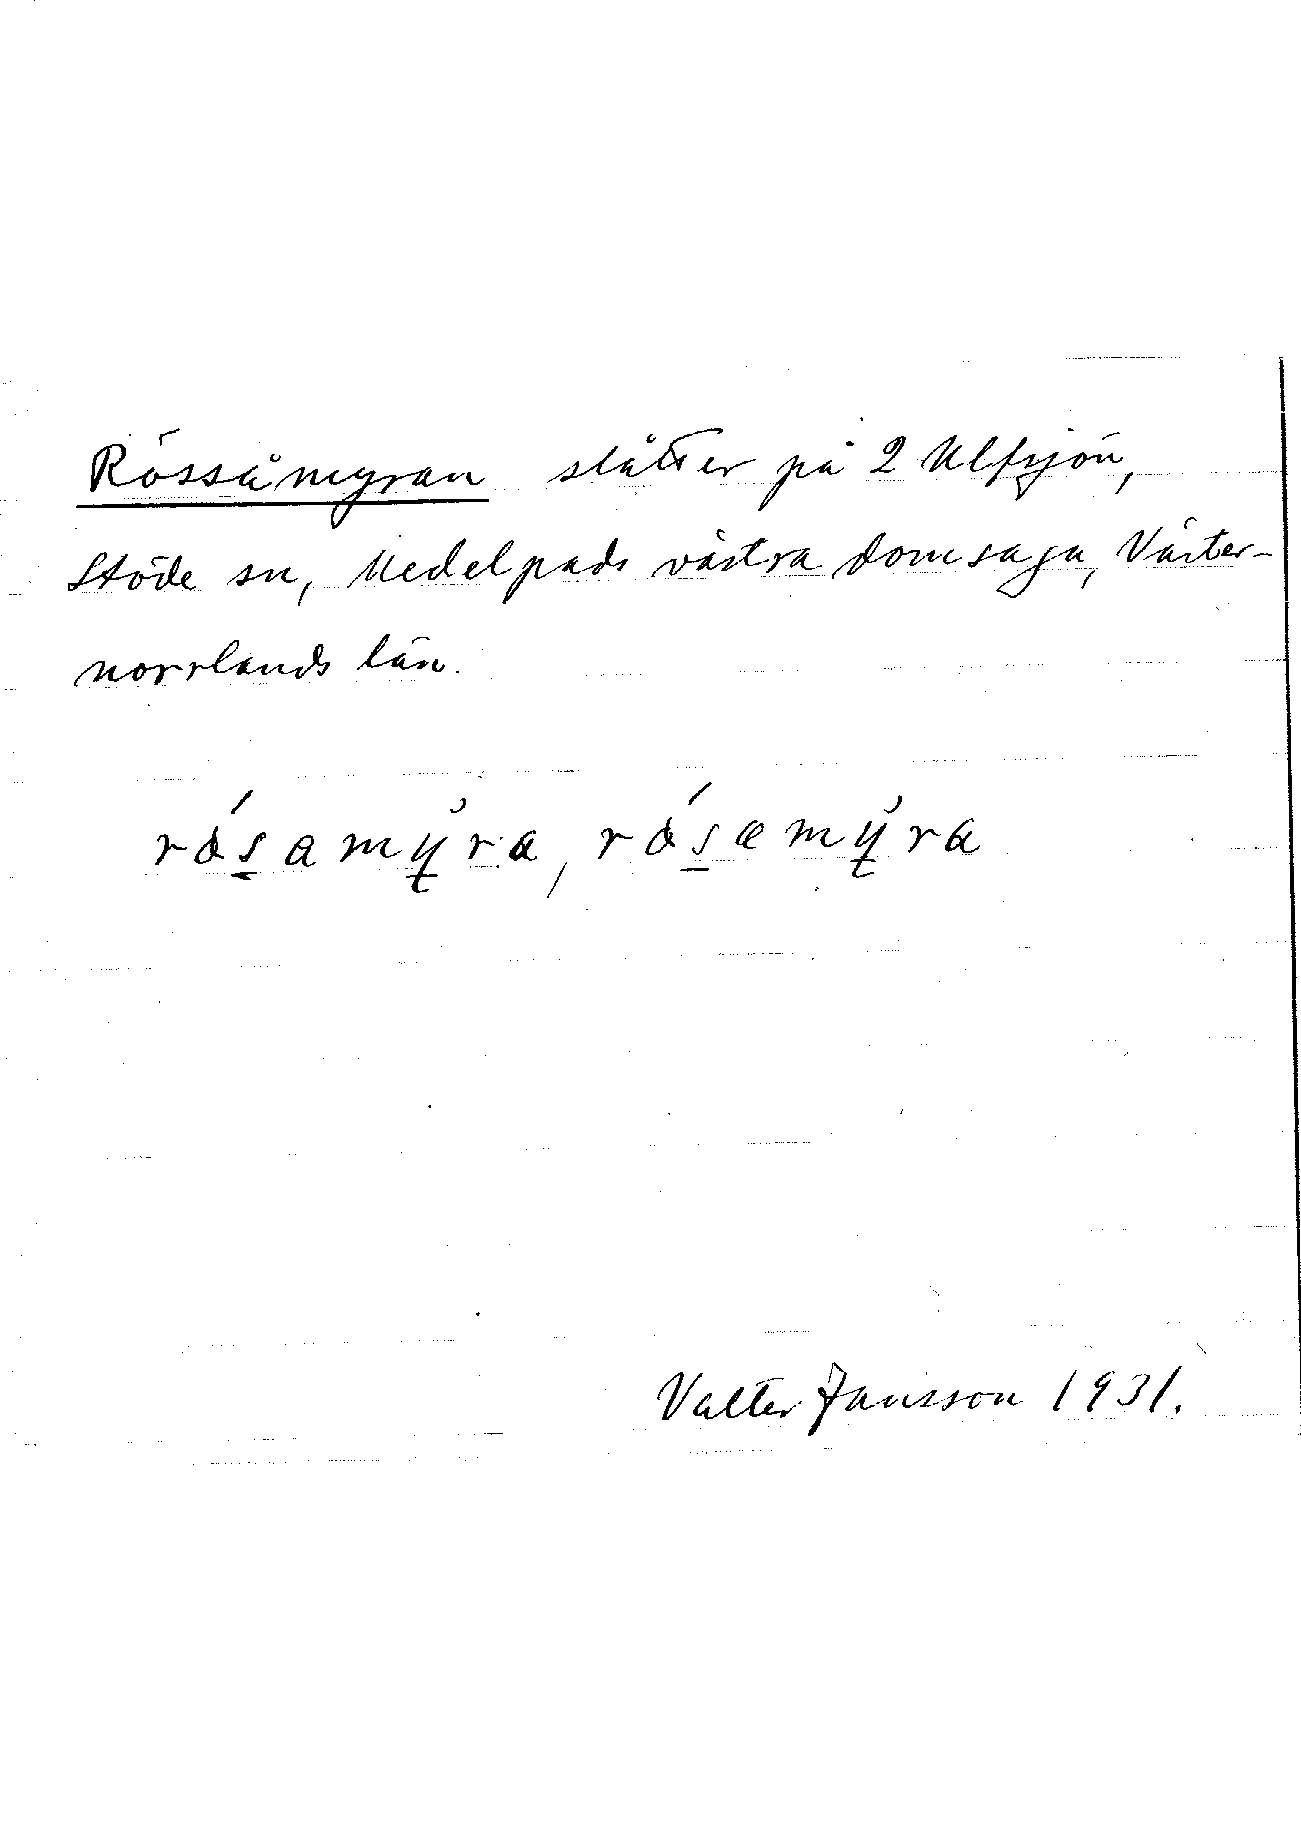 Rössåmyran slåtter på 2 Ulfsjön,
Stöde sn, Medelpads västra domsaga, Väster-
norrlands län.
Valter Jansson 1931.